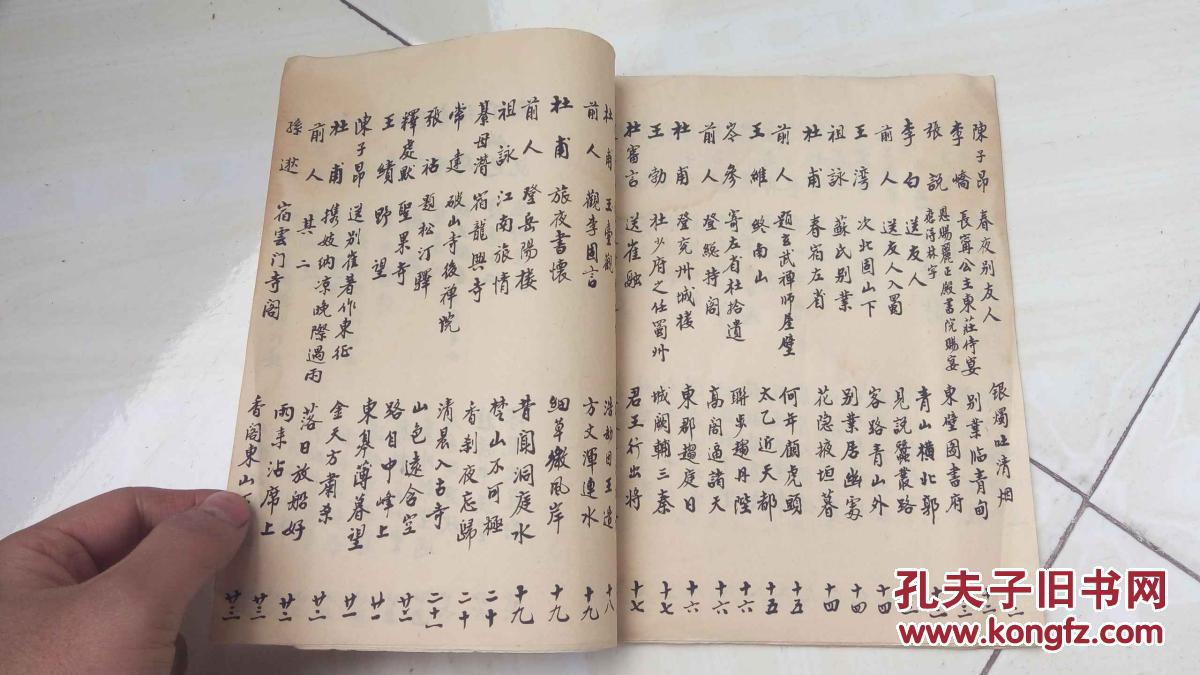 陳子昂 春夜别友人 銀燭吐清烟
李嶠 長寗公主東莊侍宴 别業臨青甸
張説 恩賜麗正殿書院賜宴應得林字 東壁圖書府
李白 送友人 青山横北郭
前人 送友人入蜀 見説蠶叢路 十四
王湾 次北固山下 客路青山外 十四
祖詠 蘇氏别業 别業居幽處 十四
杜甫 春宿左省 花隐掖垣暮 十四
前人 題玄武禅师屋壁 何年顧虎頭 十五
王維 終南山 太乙近天都 十五
岑參 寄左省杜拾遺 聯步趨丹陛 十六
前人 登總持阁 高阁逼諸天 十六
杜甫 登兖州城楼 東郡趨庭日 十六
王勃 杜少府之任蜀州 城闕輔三秦 十七
杜審言 送崔融 君王行出将 十七
杜甫 玉臺觀 浩劫因王造 十八
前人 觀李固言 方丈渾連水 十九
杜甫 旅夜書懷 细草微風岸 十九
前人 登岳陽楼 昔聞洞庭水 十九
祖詠 江南旅情 楚山不可極 二十
綦母潜 宿龍興寺 香刹夜忘歸 二十
常建 破山寺後禅院 清晨入古寺 二十一
張祜 題松汀驛 山色遠含空
釋處默 聖果寺 路自中峰上
王績 野望 東皋薄暮望
陳子昂 送别崔著作東征 金天方肅杀
杜甫 携妓纳凉晚際遇雨 落日放船好
前人 其二 雨来沾席上 廿三
孫逖 宿雲门寺阁 香阁東山下 廿三
孔夫子旧书网
www.kongfz.com